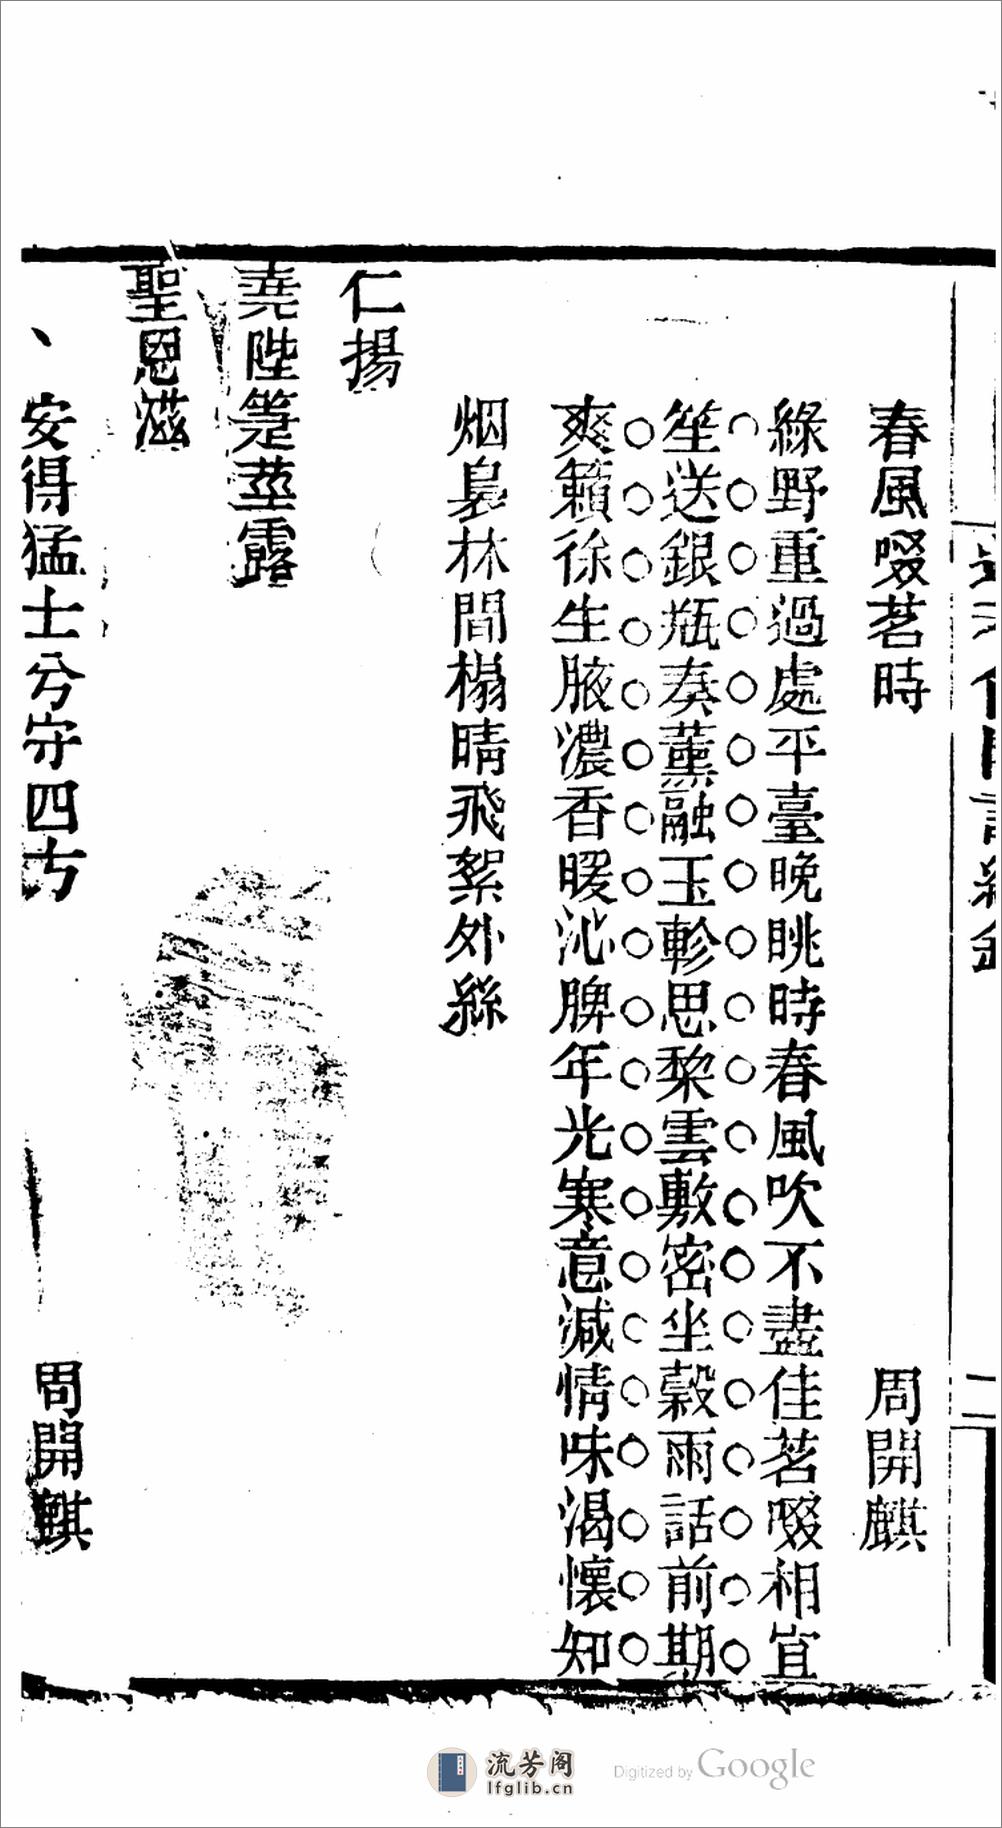 春風啜茗時
周開麒
綠野重過處平臺晚眺時春風吹不盡佳茗啜相宜
笙送銀瓶奏薰融玉軫思棃雲敷密坐穀雨話前期
爽籟徐生腋濃香暖沁脾年光寒意減情味渴懷知
烟裊林間榻晴飛絮外絲
仁揚
堯陛箑莖露
聖恩滋
安得猛士兮守四方
周開麒
二
流芳阁
lfglib.cn
Digitized by Google